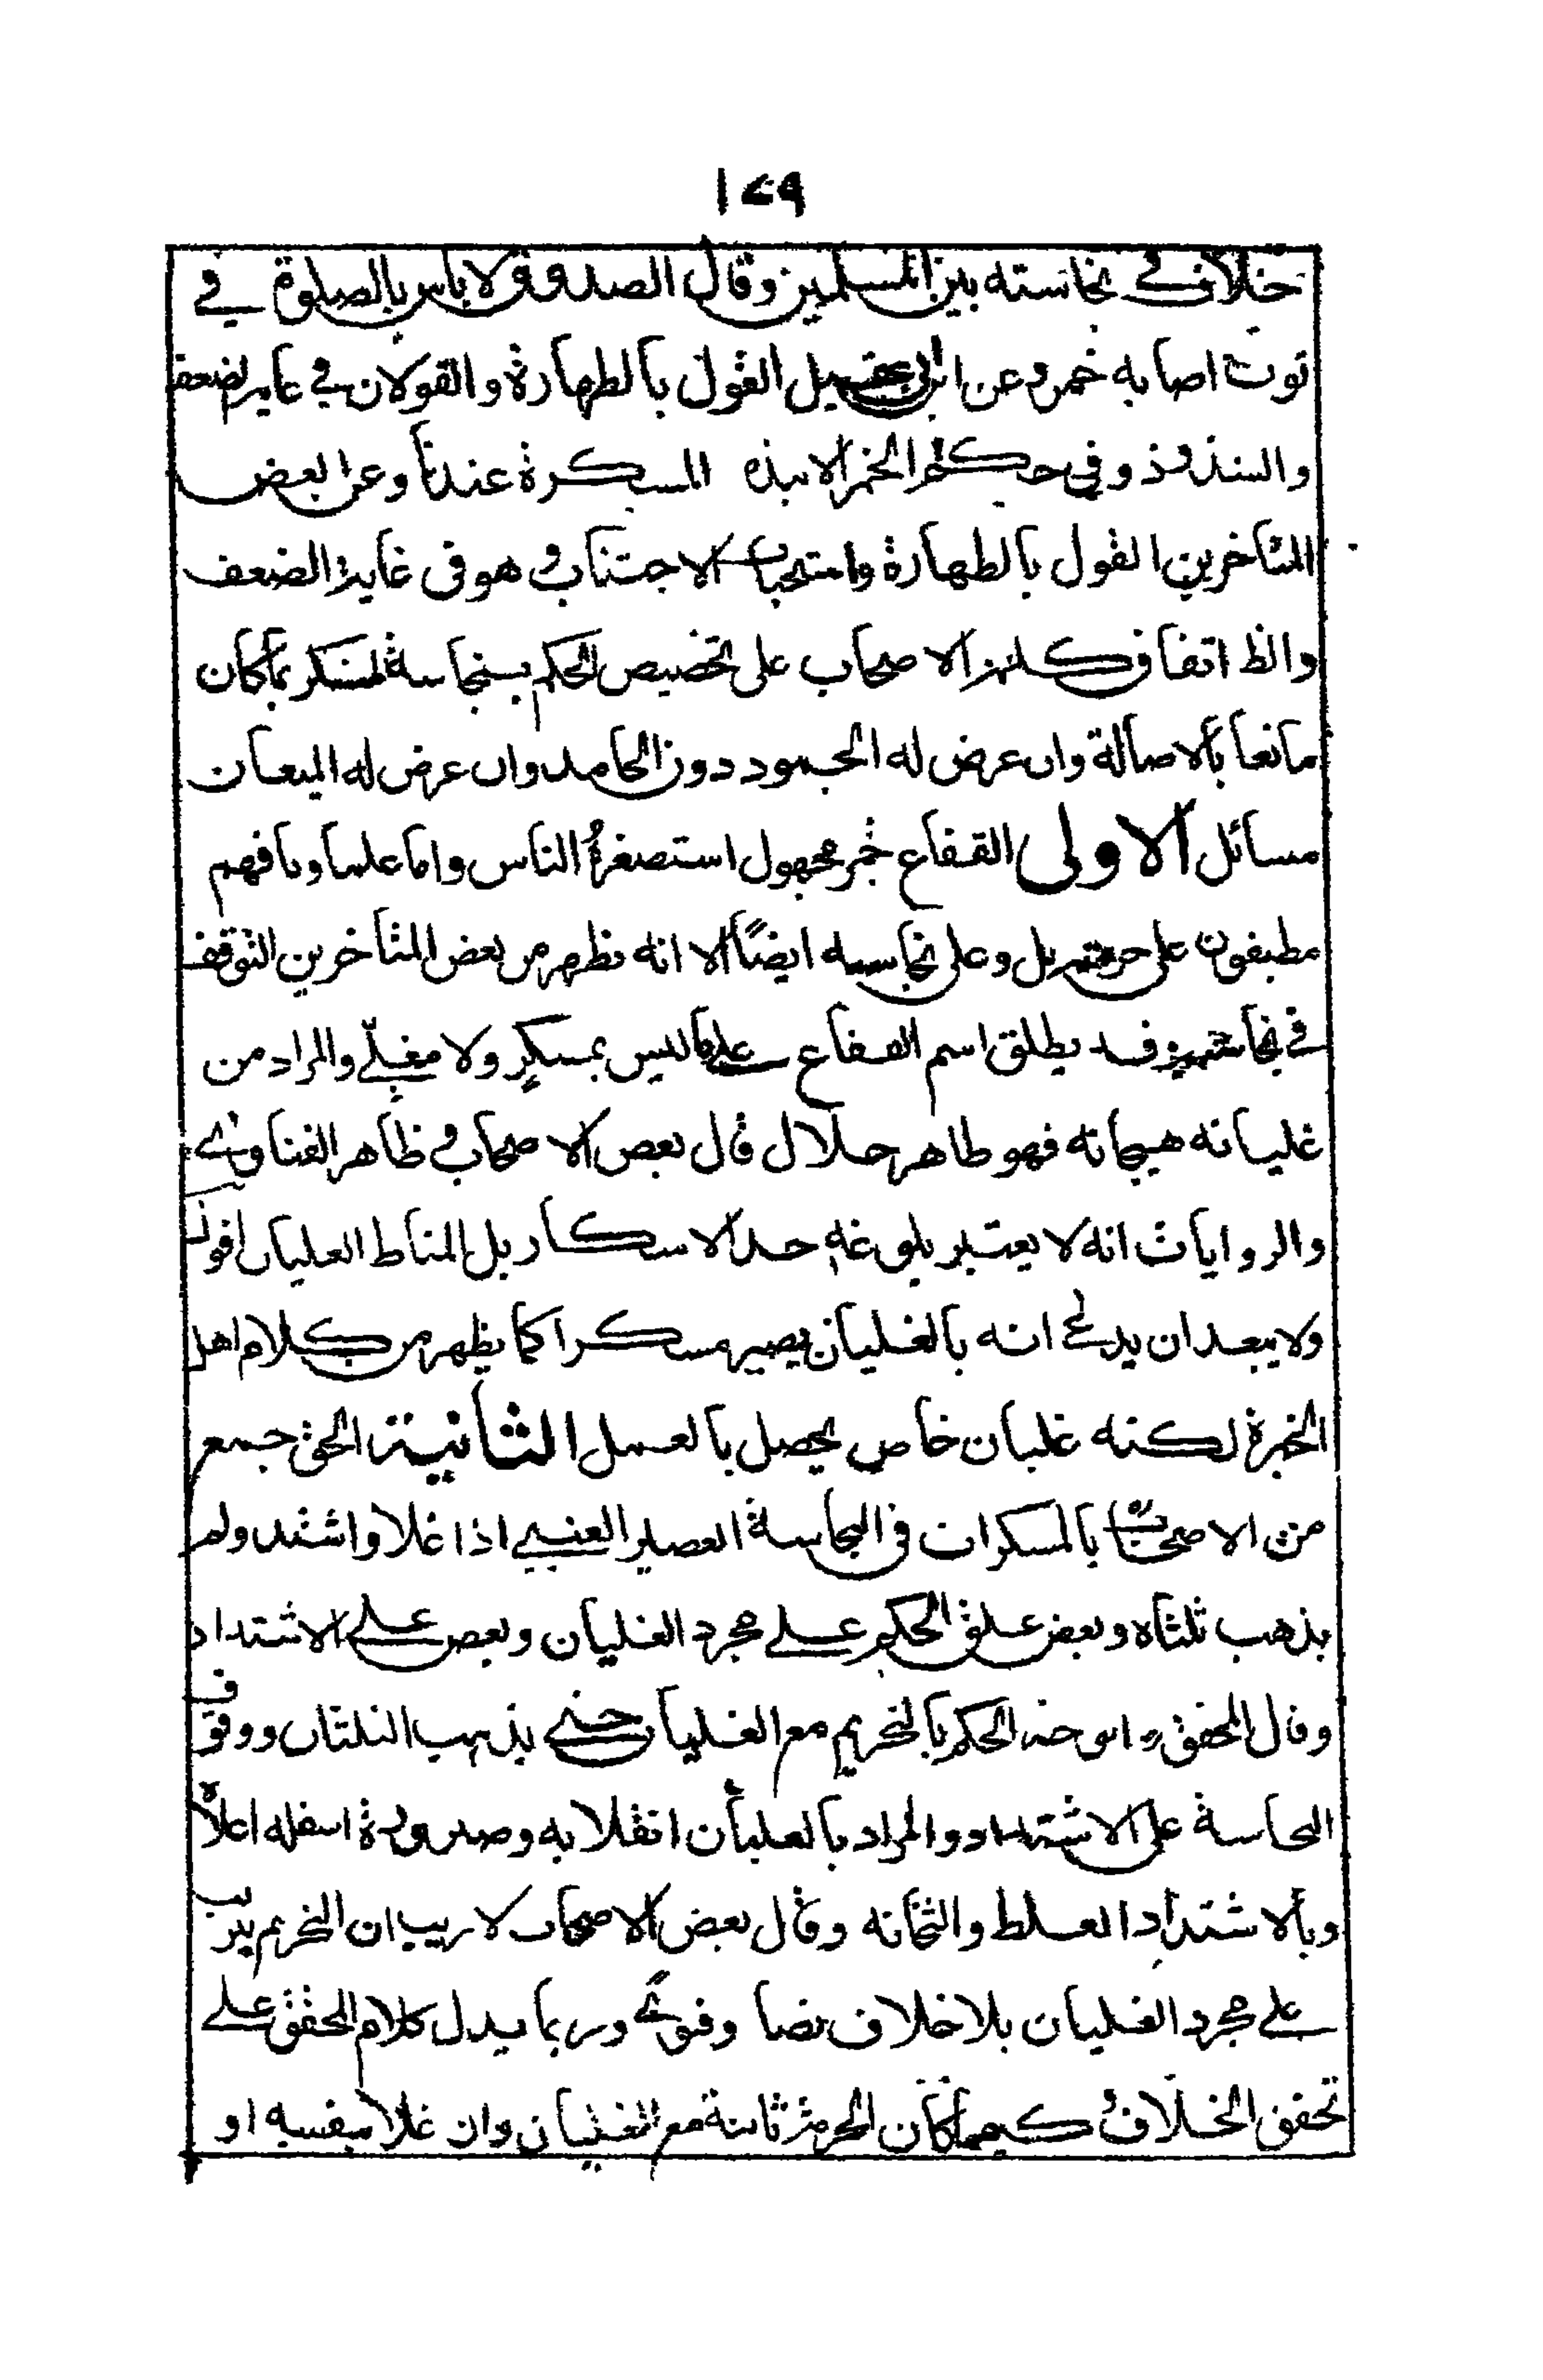 ١٤٩
خلاف في نجاسته بين المسلمين وقال الصدوق لا باس بالصلوة في
ثوب اصابه خمر وعن ابن ابي عقيل القول بالطهارة والقولان في غاية الضعف
والشذوذ وفي حكم الخمر الانبذه المسكرة عندنا وعن بعض
المتاخرين القول بالطهارة واستحباب الاجتناب وهو في غاية الضعف
والظ اتفاق كلمة الاصحاب على تخصيص الحكم بنجاسة المسكر بما كان
مائعا بالاصالة وان عرض له الجمود دون الجامد وان عرض له الميعان
مسائل الاولى الفقاع خمر مجهول استصغره الناس واما علماؤنا فهم
مطبقون على حرمته بل وعلى نجاسته ايضًا الا انه يظهر من بعض المتاخرين التوقف
في نجاسته وقد يطلق اسم الفقاع على ما ليس بمسكر ولا مغلّي والمراد من
غليانه هيجانه فهو طاهر حلال قال بعض الاصحاب وظاهر الفتاوى
والروايات انه لا يعتبر بلوغه حد الاسكار بل المناط الغليان اقول
ولا يبعد ان يدعى انه بالغليان يصير مسكرا كما يظهر من كلام اهل
الخبرة لكنه غليان خاص يحصل بالعمل الثانية الحق جمع
من الاصحاب بالمسكرات في النجاسة العصير العنبي اذا غلا واشتد ولم
يذهب ثلثاه وبعض علق الحكم على مجرد الغليان وبعض على الاشتداد
وقال المحقق ره الحكم بالتحريم مع الغليان حتى يذهب الثلثان ووقف
النجاسة على الاشتداد والمراد بالغليان انقلابه وصيرورة اسفله اعلاه
وبالاشتداد الغلظ والثخانه وقال بعض الاصحاب لا ريب ان التحريم يترتب
على مجرد الغليان بلا خلاف نصا وفتوى وربما يدل كلام المحقق على
تحقق الخلاف وكيفما كان الحرمة ثابتة مع الغليان وان غلا بنفسه او